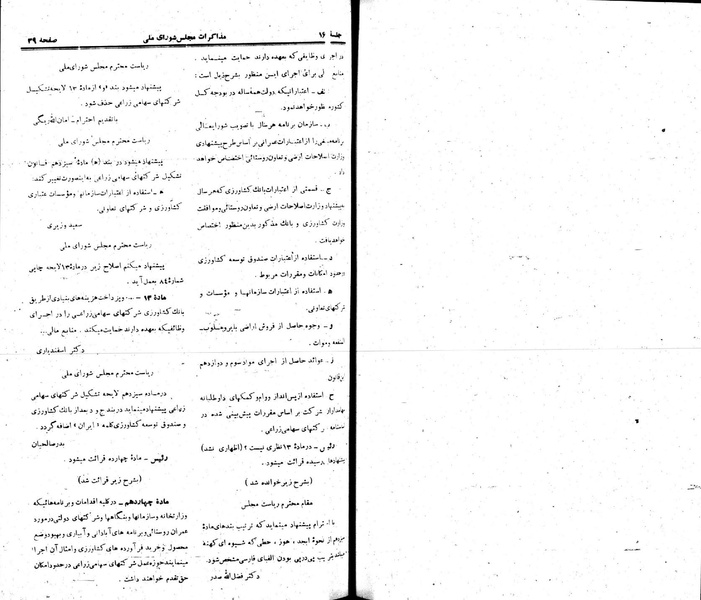 جلسهٔ ۱۶
مذاکرات مجلس شورای ملی
صفحهٔ ۳۹
وظایفی که بعهده دارند حمایت مینماید .
برای اجرای این منظور بشرح ذیل است :
اعتباراتیکه دولت همه‌ساله در بودجه کل
کشور منظور خواهد نمود.
سازمان برنامه هرسال با تصویب شورایعالی
را از اعتبارات عمرانی بر اساس طرح پیشنهادی
وزارت اصلاحات ارضی و تعاون روستائی اختصاص خواهد
داد .
ج - قسمتی از اعتبارات بانک کشاورزی که هر سال
پیشنهاد وزارت اصلاحات ارضی و تعاون روستائی و موافقت
وزارت کشاورزی و بانک مذکور بدین منظور اختصاص
خواهد یافت .
د - استفاده از اعتبارات صندوق توسعه کشاورزی
در حدود امکانات و مقررات مربوط .
ه - استفاده از اعتبارات سازمانها و مؤسسات و
شرکتهای تعاونی.
و - وجوه حاصل از فروش اراضی بایر و مسلوب-
المنفعه وموات .
ز - عوائد حاصل از اجرای مواد سوم و دوازدهم
این قانون
ح - استفاده از پس‌انداز و وام و کمکهای داوطلبانه
سهامداران شرکت بر اساس مقررات پیش‌بینی شده در
اساسنامه شرکتهای سهامی زراعی.
رئیس - در مادهٔ ۱۳ نظری نیست ؟ (اظهاری نشد)
پیشنهادها رسیده قرائت میشود .
(بشرح زیر خوانده شد)
مقام محترم ریاست مجلس
با احترام پیشنهاد مینماید که ترتیب بندهای مادهٔ
سیزدهم از نحوهٔ ابجد ، هوز ، حطی که شیوه ای کهنه
پی‌درپی بودن الفبای فارسی مشخص شود.
دکتر فضل‌الله صدر
ریاست محترم مجلس شورای ملی
پیشنهاد میشود بند «و» از مادهٔ ۱۳ لایحه تشکیل
شرکتهای سهامی زراعی حذف شود .
باتقدیم احترام - امان‌الله ریگی
ریاست محترم مجلس شورای ملی
پیشنهاد میشود در بند (ه) مادهٔ سیزدهم قانون
تشکیل شرکتهای سهامی زراعی به اینصورت تغییر کند:
ه - استفاده از اعتبارات سازمانها و مؤسسات اعتباری
کشاورزی و شرکتهای تعاونی.
سعید وزیری
ریاست محترم مجلس شورای ملی
پیشنهاد میکنم اصلاح زیر در مادهٔ ۱۳ لایحه چاپی
شمارهٔ ۸۴ بعمل آید .
مادهٔ ۱۳ - ... و پرداخت هزینه های بنیادی از طریق
بانک کشاورزی شرکتهای سهامی زراعی را در اجرای
وظائفیکه بعهده دارند حمایت میکند . منابع مالی...
دکتر اسفندیاری
ریاست محترم مجلس شورای ملی
در ماده سیزدهم لایحه تشکیل شرکتهای سهامی
زراعی پیشنهاد مینماید در بند ج و د بعد از بانک کشاورزی
و صندوق توسعه کشاورزی کلمه « ایران » اضافه گردد .
بدرصالحیان
رئیس - مادهٔ چهارده قرائت میشود .
(بشرح زیر قرائت شد)
مادهٔ چهاردهم - در کلیه اقدامات و برنامه هائیکه
وزارتخانه و سازمانها و بنگاهها و شرکتهای دولتی در مورد
عمران روستائی و برنامه های آبادانی و آبیاری و بهبود وضع
محصول و خرید فرآورده های کشاورزی و امثال آن اجرا
مینمایند حوزه عمل شرکتهای سهامی زراعی در حدود امکان
حق تقدم خواهند داشت .